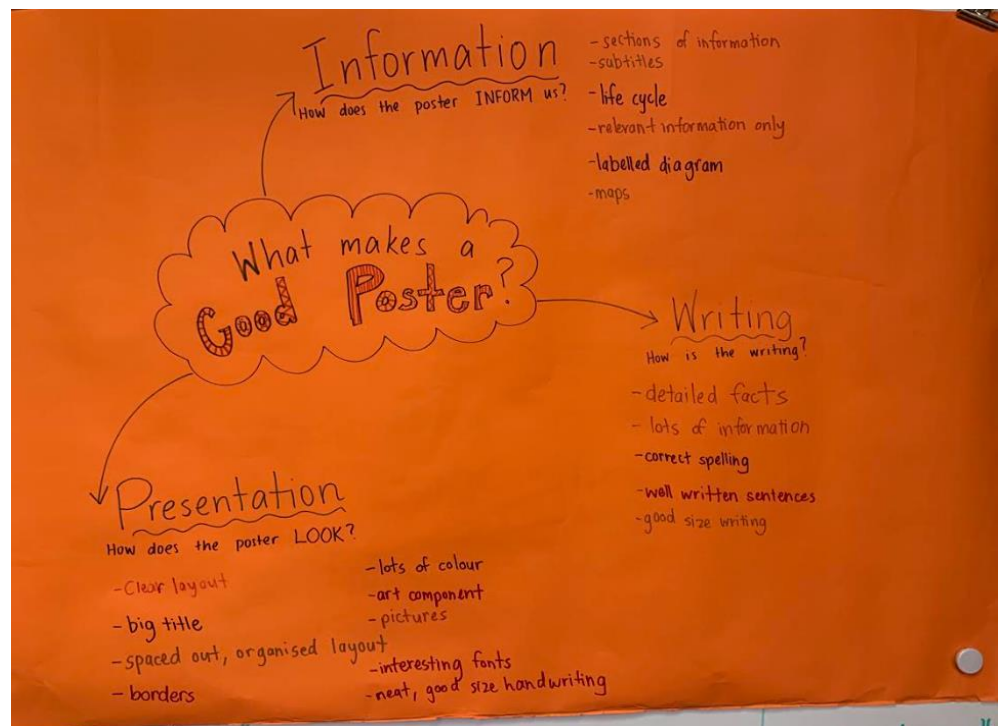 Information
How does the poster INFORM us?
- sections of information
- subtitles
- life cycle
- relevant information only
- labelled diagram
- maps
What makes a
Good Poster?
Writing
How is the writing?
- detailed facts
- lots of information
- correct spelling
- well written sentences
- good size writing
Presentation
How does the poster LOOK?
- Clear layout
- big title
- spaced out, organised layout
- borders
- lots of colour
- art component
- pictures
- interesting fonts
- neat, good size handwriting